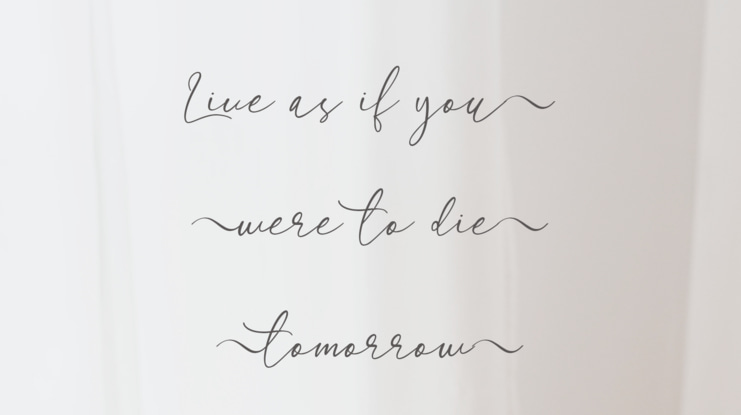 Live as if you
were to die
tomorrow